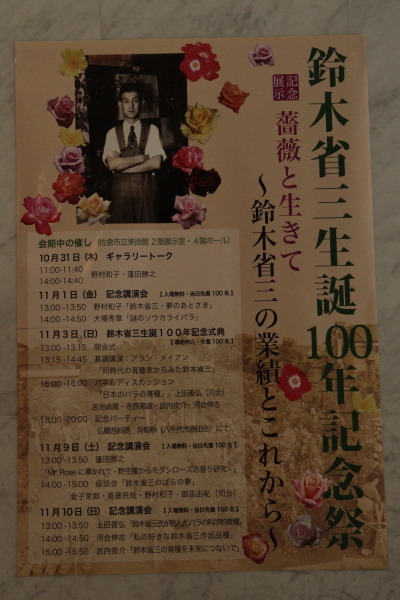 鈴木省三生誕100年記念祭
記念展示
薔薇と生きて
〜鈴木省三の業績とこれから〜
会期中の催し(佐倉市立美術館 2階展示室・4階ホール)
10月31日(木) ギャラリートーク
11:00-11:40
14:00-14:40 野村和子・蓬田勝之
11月1日(金) 記念講演会 【入場無料・当日先着100名】
13:00-13:50 野村和子「鈴木省三・夢のあとさき」
14:00-14:50 大場秀章「謎のソウカライバラ」
11月3日(日) 鈴木省三生誕100年記念式典
【事前申込・先着100名】
13:00-13:15 開会式
13:15-14:45 基調講演:アラン・メイアン
「同時代の育種家からみた鈴木省三」
15:00-16:00 パネルディスカッション
「日本のバラの育種」、上田善弘(司会)
吉池貞蔵・寺西菊雄・武内俊介・河合伸志
18:00-20:00 記念パーティー
11月9日(土) 記念講演会 【入場無料・当日先着100名】
13:00-13:50 蓬田勝之
「Mr. Roseに導かれて - 野生種からモダンローズの香り研究 -」
14:00-15:00 座談会「鈴木省三のばらの夢」
金子克郎・斎藤民哉・野村和子・御巫由紀(司会)
11月10日(日) 記念講演会 【入場無料・当日先着100名】
13:00-13:50 上田善弘「鈴木省三氏が挑んだバラの科学的育種」
14:00-14:50 河合伸志「私の好きな鈴木省三作出品種」
15:00-15:50 武内俊介「鈴木省三の育種を未来につないで」